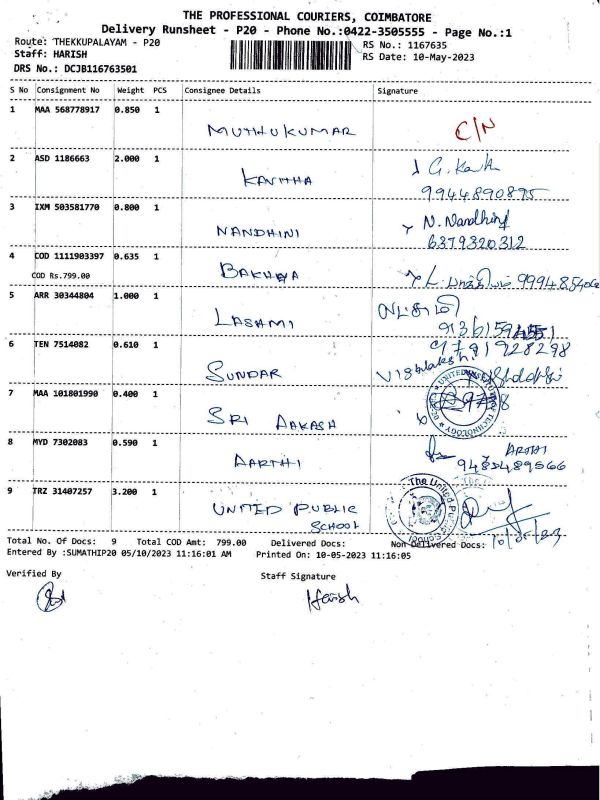 THE PROFESSIONAL COURIERS, COIMBATORE
Delivery Runsheet - P20 - Phone No.:0422-3505555 - Page No.:1
Route: THEKKUPALAYAM - P20
RS No.: 1167635
Staff: HARISH
RS Date: 10-May-2023
DRS No.: DCJB116763501
S No Consignment No Weight PCS Consignee Details Signature
1 MAA 568778917 0.850 1
MUTHUKUMAR C/N
2 ASD 1186663 2.000 1
KAVITHA G.
9944890895
3 IXM 503581770 0.800 1
NANDHINI N. Nandhini
6379320312
4 COD 1111903397 0.635 1
COD Rs.799.00
5 ARR 30344804 1.000 1
LASHMI
6 TEN 7514082 0.610 1
9791928298
SUNDAR
7 MAA 101801990 0.400 1
SRI AAKASH
8 MYD 7302083 0.590 1
AARTHI ARTHI
9 TRZ 31407257 3.200 1
UNITED PUBLIC
SCHOOL
10/05/23
Total No. Of Docs: 9 Total COD Amt: 799.00 Delivered Docs: Non Delivered Docs:
Entered By :SUMATHIP20 05/10/2023 11:16:01 AM Printed On: 10-05-2023 11:16:05
Verified By Staff Signature
Harish